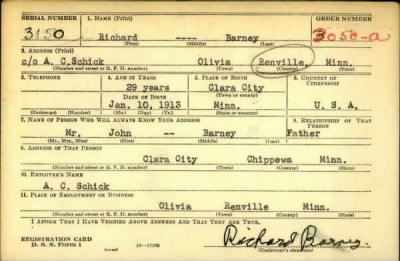 SERIAL NUMBER 1. NAME (Print) ORDER NUMBER
3150 Richard --- Barney 3050-a
(First) (Middle) (Last)
2. ADDRESS (Print)
c/o A. C. Schick Olivia Renville, Minn.
(Number and street or R. F. D. number) (Town) (County) (State)
3. TELEPHONE 4. AGE IN YEARS 5. PLACE OF BIRTH 6. COUNTRY OF CITIZENSHIP
29 years Clara City
DATE OF BIRTH (Town or county)
Jan. 10, 1913 Minn. U. S. A.
(Exchange) (Number) (Mo.) (Day) (Yr.) (State or country)
7. NAME OF PERSON WHO WILL ALWAYS KNOW YOUR ADDRESS 8. RELATIONSHIP OF THAT PERSON
Mr. John --- Barney Father
(Mr., Mrs., Miss) (First) (Middle) (Last)
9. ADDRESS OF THAT PERSON
Clara City Chippewa Minn.
(Number and street or R. F. D. number) (Town) (County) (State)
10. EMPLOYER'S NAME
A. C. Schick
11. PLACE OF EMPLOYMENT OR BUSINESS
Olivia Renville Minn.
(Number and street or R. F. D. number) (Town) (County) (State)
I AFFIRM THAT I HAVE VERIFIED ABOVE ANSWERS AND THAT THEY ARE TRUE.
REGISTRATION CARD
D. S. S. Form 1 Richard Barney
(Registrant's signature)